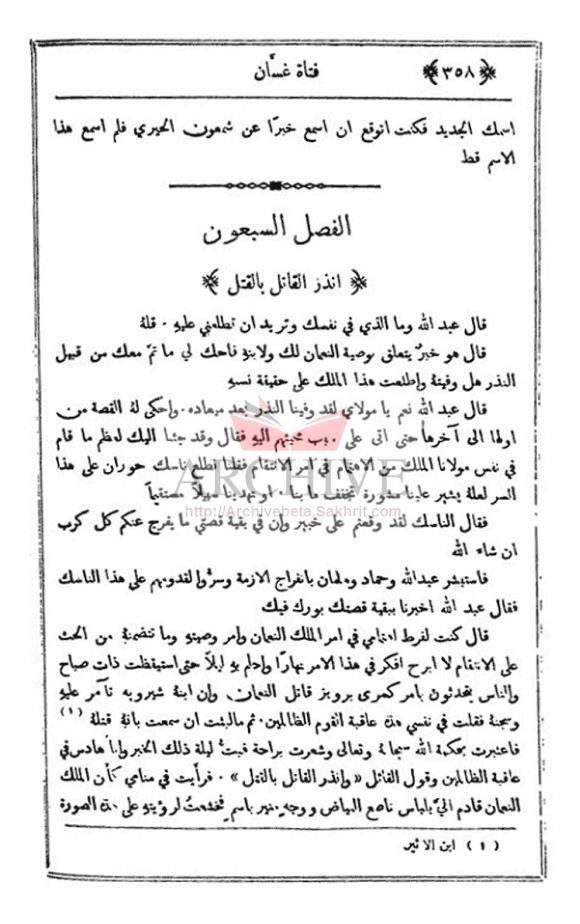 ﴿٣٥٨﴾ فتاة غسّان
اسمك الجديد فكنت اتوقع ان اسمع خبرًا عن شمعون الحيري فلم اسمع هذا
الاسم قط
الفصل السبعون
﴿ انذر القاتل بالقتل ﴾
قال عبد الله وما الذي في نفسك وتريد ان تطلعني عليهِ . قلهُ
قال هو خبرٌ يتعلق بوصية النعمان لك ولابنهِ فاحك لي ما تمّ معك من قبيل
النذر هل وفيتهُ واطلعت هذا الملك على حقيقة نسبهِ
قال عبد الله نعم يا مولاي لقد وفينا النذر بعد ميعاده . واحكى لهُ القصة من
اولها الى آخرها حتى اتى على سبب مجيئهم اليهِ فقال وقد جئنا اليك لعظم ما قام
في نفس مولانا الملك من الاهتمام في امر الانتقام فقلنا نطلع ناسك حوران على هذا
السر لعلهُ يشير علينا مشورة تخفف ما بنا . او تهدينا سبيلًا مستقيماً
فقال الناسك لقد وقعتم على خبير وإن في بقية قصتي ما يفرج عنكم كل كرب
ان شاء الله
فاستبشر عبدالله وحماد وسلمان بانفراج الازمة وسرُّوا لقدومهم على هذا الناسك
فقال عبد الله اخبرنا ببقية قصتك بورك فيك
قال كنت لفرط اهتمامي في امر الملك النعمان وامر وصيتهِ وما تتضمنهُ من الحث
على الانتقام لا ابرح افكر في هذا الامر نهارًا واحلم بهِ ليلًا حتى استيقظت ذات صباح
والناس يتحدثون بامر كسرى برويز قاتل النعمان وإن ابنهُ شيرويه تآمر عليهِ
وسجنهُ فقلت في نفسي هذه عاقبة القوم الظالمين . ثم مالبثت ان سمعت بانهُ قتلهُ (١)
فاعتبرت بحكمة الله سبحانهُ وتعالى وشعرت براحة فبتُّ ليلة ذلك الخبر وانا هادس في
عاقبة الظالمين وقول القائل «وانذر القاتل بالقتل» . فرأيت في منامي كأن الملك
النعمان قادم اليّ بلباس ناصع البياض ووجهٍ منير باسم فخشعتُ لرؤيتهِ على هذه الصورة
(١) ابن الاثير
ARCHIVE
http://Archivebeta.Sakhrit.com